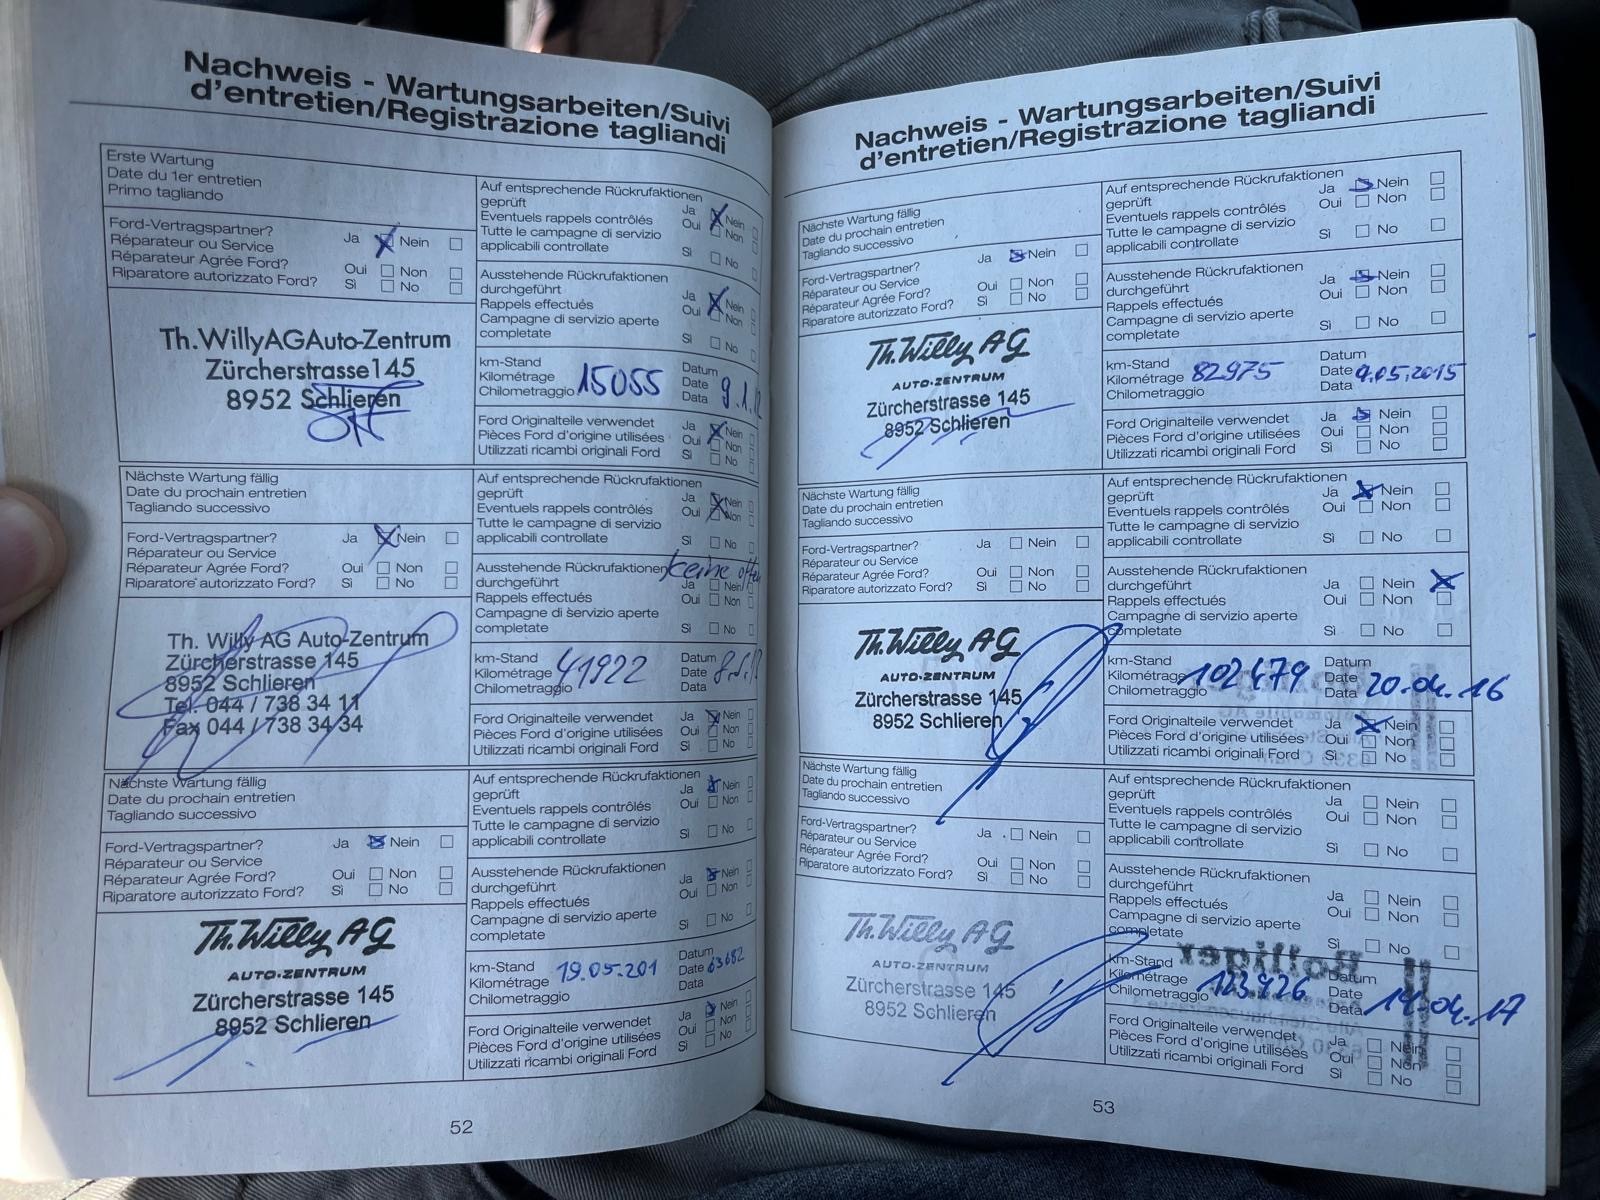 Nachweis - Wartungsarbeiten/Suivi
d'entretien/Registrazione tagliandi
Erste Wartung
Date du 1er entretien
Primo tagliando
Ford-Vertragspartner? Ja Nein
Réparateur ou Service
Réparateur Agrée Ford? Oui Non
Riparatore autorizzato Ford? Sì No
Th.WillyAGAuto-Zentrum
Zürcherstrasse145
8952 Schlieren
Auf entsprechende Rückrufaktionen
geprüft Ja Nein
Eventuels rappels contrôlés Oui Non
Tutte le campagne di servizio
applicabili controllate Sì No
Ausstehende Rückrufaktionen
durchgeführt Ja Nein
Rappels effectués Oui Non
Campagne di servizio aperte
completate Sì No
km-Stand Datum
Kilométrage 15055 Date 9.1.
Chilometraggio Data
Ford Originalteile verwendet Ja Nein
Pièces Ford d'origine utilisées Oui Non
Utilizzati ricambi originali Ford Sì No
Nächste Wartung fällig
Date du prochain entretien
Tagliando successivo
Ford-Vertragspartner? Ja Nein
Réparateur ou Service
Réparateur Agrée Ford? Oui Non
Riparatore autorizzato Ford? Sì No
Th. Willy AG Auto-Zentrum
Zürcherstrasse 145
8952 Schlieren
Tel. 044 / 738 34 11
Fax 044 / 738 34 34
Auf entsprechende Rückrufaktionen
geprüft Ja Nein
Eventuels rappels contrôlés Oui Non
Tutte le campagne di servizio
applicabili controllate Sì No
Ausstehende Rückrufaktionen keine
durchgeführt Ja Nein
Rappels effectués Oui Non
Campagne di servizio aperte
completate Sì No
km-Stand Datum
Kilométrage 41922 Date
Chilometraggio Data
Ford Originalteile verwendet Ja Nein
Pièces Ford d'origine utilisées Oui Non
Utilizzati ricambi originali Ford Sì No
Nächste Wartung fällig
Date du prochain entretien
Tagliando successivo
Ford-Vertragspartner? Ja Nein
Réparateur ou Service
Réparateur Agrée Ford? Oui Non
Riparatore autorizzato Ford? Sì No
Th. Willy AG
AUTO-ZENTRUM
Zürcherstrasse 145
8952 Schlieren
Auf entsprechende Rückrufaktionen
geprüft Ja Nein
Eventuels rappels contrôlés Oui Non
Tutte le campagne di servizio
applicabili controllate Sì No
Ausstehende Rückrufaktionen
durchgeführt Ja Nein
Rappels effectués Oui Non
Campagne di servizio aperte
completate Sì No
km-Stand Datum
Kilométrage 19.05.201 Date 63682
Chilometraggio Data
Ford Originalteile verwendet Ja Nein
Pièces Ford d'origine utilisées Oui Non
Utilizzati ricambi originali Ford Sì No
52
Nachweis - Wartungsarbeiten/Suivi
d'entretien/Registrazione tagliandi
Nächste Wartung fällig
Date du prochain entretien
Tagliando successivo
Ford-Vertragspartner? Ja Nein
Réparateur ou Service
Réparateur Agrée Ford? Oui Non
Riparatore autorizzato Ford? Sì No
Th. Willy AG
AUTO-ZENTRUM
Zürcherstrasse 145
8952 Schlieren
Auf entsprechende Rückrufaktionen
geprüft Ja Nein
Eventuels rappels contrôlés Oui Non
Tutte le campagne di servizio
applicabili controllate Sì No
Ausstehende Rückrufaktionen
durchgeführt Ja Nein
Rappels effectués Oui Non
Campagne di servizio aperte
completate Sì No
km-Stand Datum
Kilométrage 82975 Date 9.05.2015
Chilometraggio Data
Ford Originalteile verwendet Ja Nein
Pièces Ford d'origine utilisées Oui Non
Utilizzati ricambi originali Ford Sì No
Nächste Wartung fällig
Date du prochain entretien
Tagliando successivo
Ford-Vertragspartner? Ja Nein
Réparateur ou Service
Réparateur Agrée Ford? Oui Non
Riparatore autorizzato Ford? Sì No
Th. Willy AG
AUTO-ZENTRUM
Zürcherstrasse 145
8952 Schlieren
Auf entsprechende Rückrufaktionen
geprüft Ja Nein
Eventuels rappels contrôlés Oui Non
Tutte le campagne di servizio
applicabili controllate Sì No
Ausstehende Rückrufaktionen
durchgeführt Ja Nein
Rappels effectués Oui Non
Campagne di servizio aperte
completate Sì No
km-Stand Datum
Kilométrage 102479 Date 20.04.16
Chilometraggio Data
Ford Originalteile verwendet Ja Nein
Pièces Ford d'origine utilisées Oui Non
Utilizzati ricambi originali Ford Sì No
Nächste Wartung fällig
Date du prochain entretien
Tagliando successivo
Ford-Vertragspartner? Ja Nein
Réparateur ou Service
Réparateur Agrée Ford? Oui Non
Riparatore autorizzato Ford? Sì No
Th. Willy AG
AUTO-ZENTRUM
Zürcherstrasse 145
8952 Schlieren
Auf entsprechende Rückrufaktionen
geprüft Ja Nein
Eventuels rappels contrôlés Oui Non
Tutte le campagne di servizio
applicabili controllate Sì No
Ausstehende Rückrufaktionen
durchgeführt Ja Nein
Rappels effectués Oui Non
Campagne di servizio aperte
completate Sì No
km-Stand Datum
Kilométrage 123926 Date 14.04.17
Chilometraggio Data
Ford Originalteile verwendet Ja Nein
Pièces Ford d'origine utilisées Oui Non
Utilizzati ricambi originali Ford Sì No
53